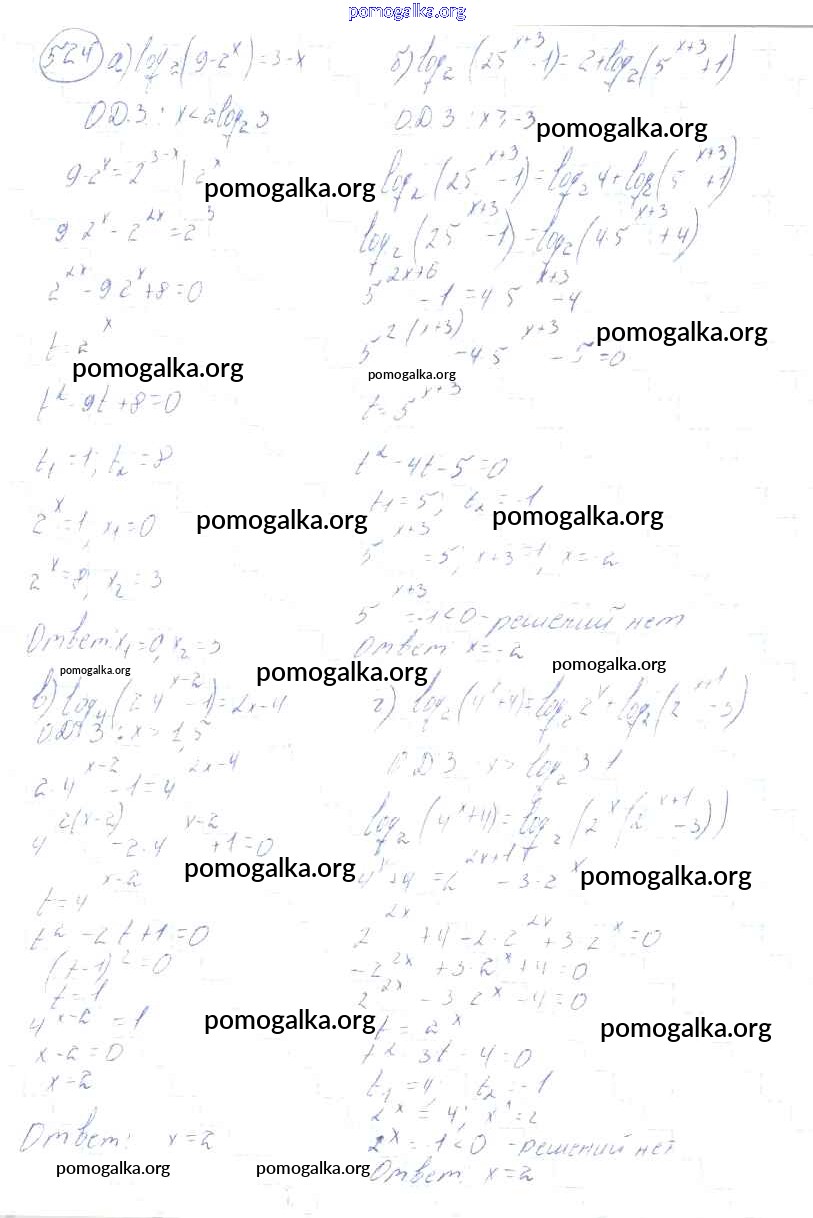 pomogalka.org
524 а) log₂(9-2^x)=3-x
О.Д.З: x<2log₂3
9-2^x=2^(3-x) | 2^x
pomogalka.org
9·2^x-2^(2x)=2^3
2^(2x)-9·2^x+8=0
t=2^x
pomogalka.org
t²-9t+8=0
t₁=1; t₂=8
2^x=1, x₁=0
pomogalka.org
2^x=8, x₂=3
Ответ: x₁=0, x₂=3
pomogalka.org
б) log₂(25^(x+3)-1)=2+log₂(5^(x+3)+1)
О.Д.З: x>-3
pomogalka.org
log₂(25^(x+3)-1)=log₂4+log₂(5^(x+3)+1)
log₂(25^(x+3)-1)=log₂(4·5^(x+3)+4)
5^(2x+6)-1=4·5^(x+3)-4
pomogalka.org
5^(2(x+3))-4·5^(x+3)-5=0
pomogalka.org
t=5^(x+3)
t²-4t-5=0
t₁=5; t₂=-1
pomogalka.org
5^(x+3)=5; x+3=1, x=-2
5^(x+3)=-1<0-решений нет
Ответ: x=-2
pomogalka.org
pomogalka.org
в) log₄(2·4^(x-2)-1)=2x-4
ОДЗ: x>1,5
2·4^(x-2)-1=4^(2x-4)
4^(2(x-2))-2·4^(x-2)+1=0
pomogalka.org
t=4^(x-2)
t²-2t+1=0
(t-1)²=0
t=1
pomogalka.org
4^(x-2)=1
x-2=0
x=2
Ответ: x=2
pomogalka.org
pomogalka.org
г) log₂(4^x+4)=log₂2^x+log₂(2^(x+1)-3)
ОДЗ x>log₂3-1
log₂(4^x+4)=log₂(2^x(2^(x+1)-3))
4^x+4=2^(2x+1)-3·2^x
pomogalka.org
2^(2x)+4-2·2^(2x)+3·2^x=0
-2^(2x)+3·2^x+4=0
2^(2x)-3·2^x-4=0
t=2^x
pomogalka.org
t²-3t-4=0
t₁=4; t₂=-1
2^x=4; x=2
2^x=-1<0 -решений нет
Ответ: x=2